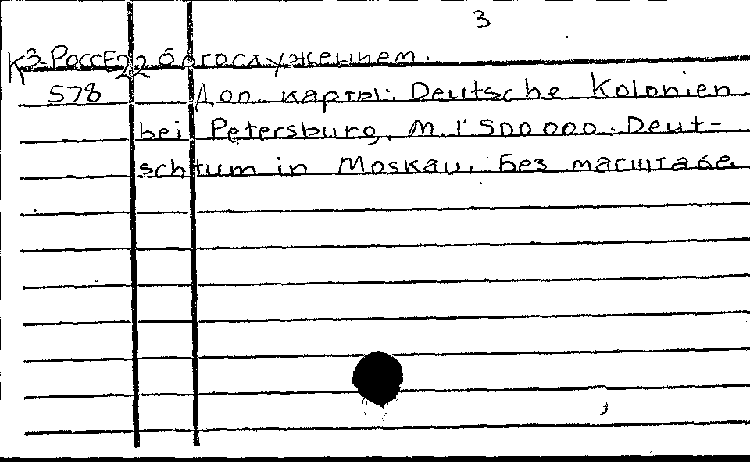 3
К3-РоссЕ22 богослужением.
578 Доп. карты: Deutsche Kolonien
bei Petersburg. М. 1:500 000. Deut-
schtum in Moskau. Без масштаба